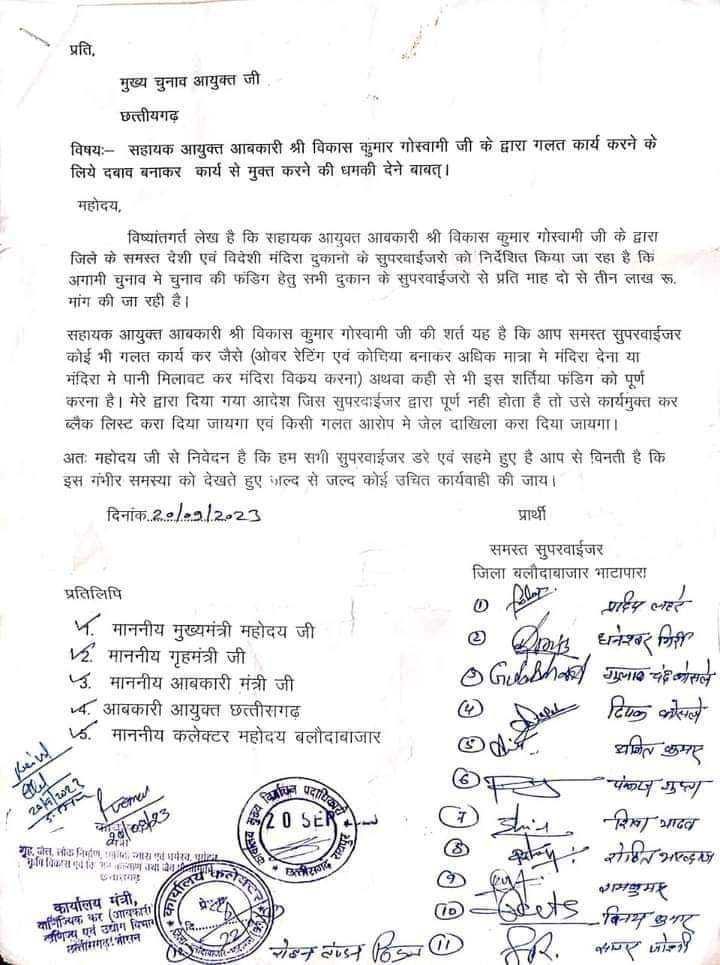 प्रति,
मुख्य चुनाव आयुक्त जी
छत्तीयगढ़
विषयः– सहायक आयुक्त आबकारी श्री विकास कुमार गोस्वामी जी के द्वारा गलत कार्य करने के
लिये दबाव बनाकर कार्य से मुक्त करने की धमकी देने बाबत्।
महोदय,
विष्यांतगर्त लेख है कि सहायक आयुक्त आबकारी श्री विकास कुमार गोस्वामी जी के द्वारा
जिले के समस्त देशी एवं विदेशी मंदिरा दुकानो के सुपरवाईजरो को निर्देशित किया जा रहा है कि
अगामी चुनाव मे चुनाव की फंडिग हेतु सभी दुकान के सुपरवाईजरो से प्रति माह दो से तीन लाख रू.
मांग की जा रही है।
सहायक आयुक्त आबकारी श्री विकास कुमार गोस्वामी जी की शर्त यह है कि आप समस्त सुपरवाईजर
कोई भी गलत कार्य कर जैसे (ओवर रेटिंग एवं कोचिया बनाकर अधिक मात्रा मे मंदिरा देना या
मंदिरा मे पानी मिलावट कर मंदिरा विक्रय करना) अथवा कही से भी इस शर्तिया फंडिग को पूर्ण
करना है। मेरे द्वारा दिया गया आदेश जिस सुपरवाईजर द्वारा पूर्ण नही होता है तो उसे कार्यमुक्त कर
ब्लैक लिस्ट करा दिया जायगा एवं किसी गलत आरोप मे जेल दाखिला करा दिया जायगा।
अतः महोदय जी से निवेदन है कि हम सभी सुपरवाईजर डरे एवं सहमे हुए है आप से विनती है कि
इस गंभीर समस्या को देखते हुए जल्द से जल्द कोई उचित कार्यवाही की जाय।
दिनांक 20/09/2023
प्रार्थी
समस्त सुपरवाईजर
जिला बलौदाबाजार भाटापारा
प्रतिलिपि
१. माननीय मुख्यमंत्री महोदय जी
२. माननीय गृहमंत्री जी
३. माननीय आबकारी मंत्री जी
४. आबकारी आयुक्त छत्तीसगढ़
५. माननीय कलेक्टर महोदय बलौदाबाजार
1
2 धनेश्वर गिरी
3 गुलाब चंद कोसले
4 दिपक कोसले
5 कुमार
6 पंकज गुप्ता
7 यादव
8
9 रामकुमार
10 कुमार
11
20/9/2023
कार्यालय मुख्य निर्वाचन पदाधिकारी
20 SEP
छत्तीसगढ़ रायपुर
कार्यालय कलेक्टर
कार्यालय मंत्री,
वाणिज्यिक कर (आबकारी)
वाणिज्य एवं उद्योग विभाग
छत्तीसगढ़ शासन